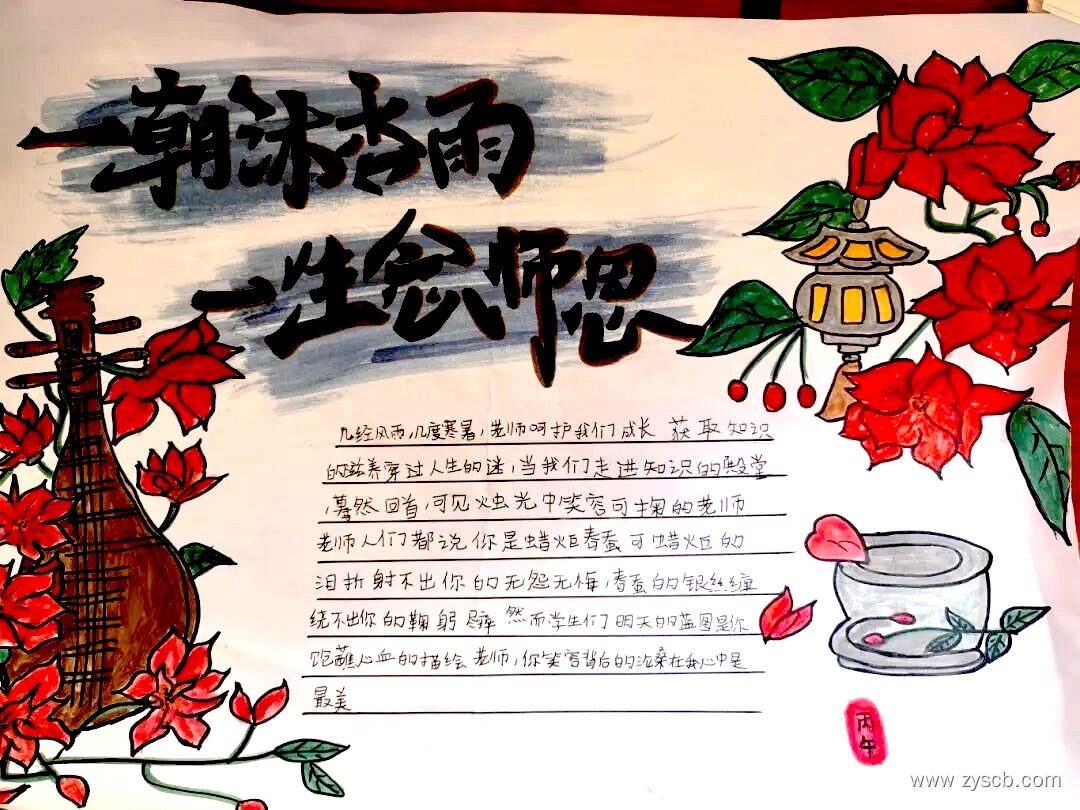 一朝沐杏雨
一生念师恩
几经风雨,几度寒暑,老师呵护我们成长 获取知识
的滋养穿过人生的谜,当我们走进知识的殿堂
,蓦然回首,可见烛光中笑容可掬的老师
老师人们都说你是蜡炬春蚕可蜡炬的
泪折射不出你的无怨无悔,春蚕的银丝缠
绕不出你的鞠躬尽瘁 然而学生们明天的蓝图是你
饱蘸心血的描绘 老师,你笑容背后的沧桑在我心中是
最美
丙午
www.zyscb.com